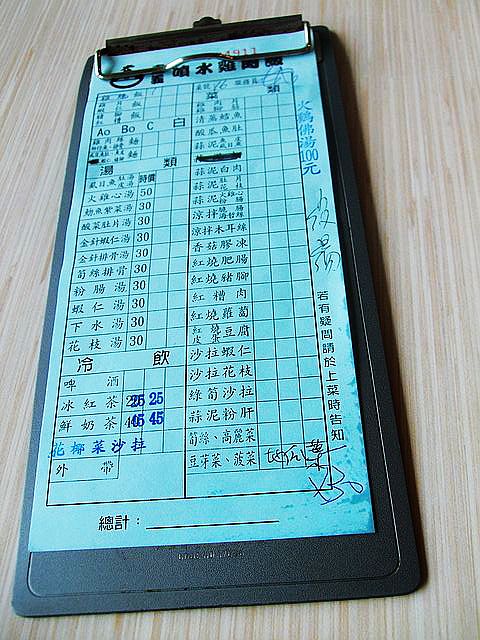 4911
噴水雞肉飯
類
雞肉飯
Ao Bo C 白
湯 類
虱目魚肚湯 時價
火雞心湯 50
魩魚紫菜湯 30
酸菜肚片湯 30
金針蝦仁湯 30
金針排骨湯 30
筍絲排骨 30
粉腸湯 30
蝦仁湯 30
下水湯 30
花枝湯 30
冷 飲
啤酒
冰紅茶 25 25
鮮奶茶 45 45
花椰菜沙拉
外帶
清蒸鱈魚
酸瓜魚肚
蒜泥白肉
涼拌木耳絲
香菇膠凍
紅燒肥腸
紅燒豬腳
紅糟肉
紅燒蘿蔔
紅燒豆腐
沙拉蝦仁
沙拉花枝
綠筍沙拉
蒜泥粉肝
筍絲、高麗菜
豆芽菜、菠菜
火鷄佛湯100元
若有疑問請於上菜時告知
總計：